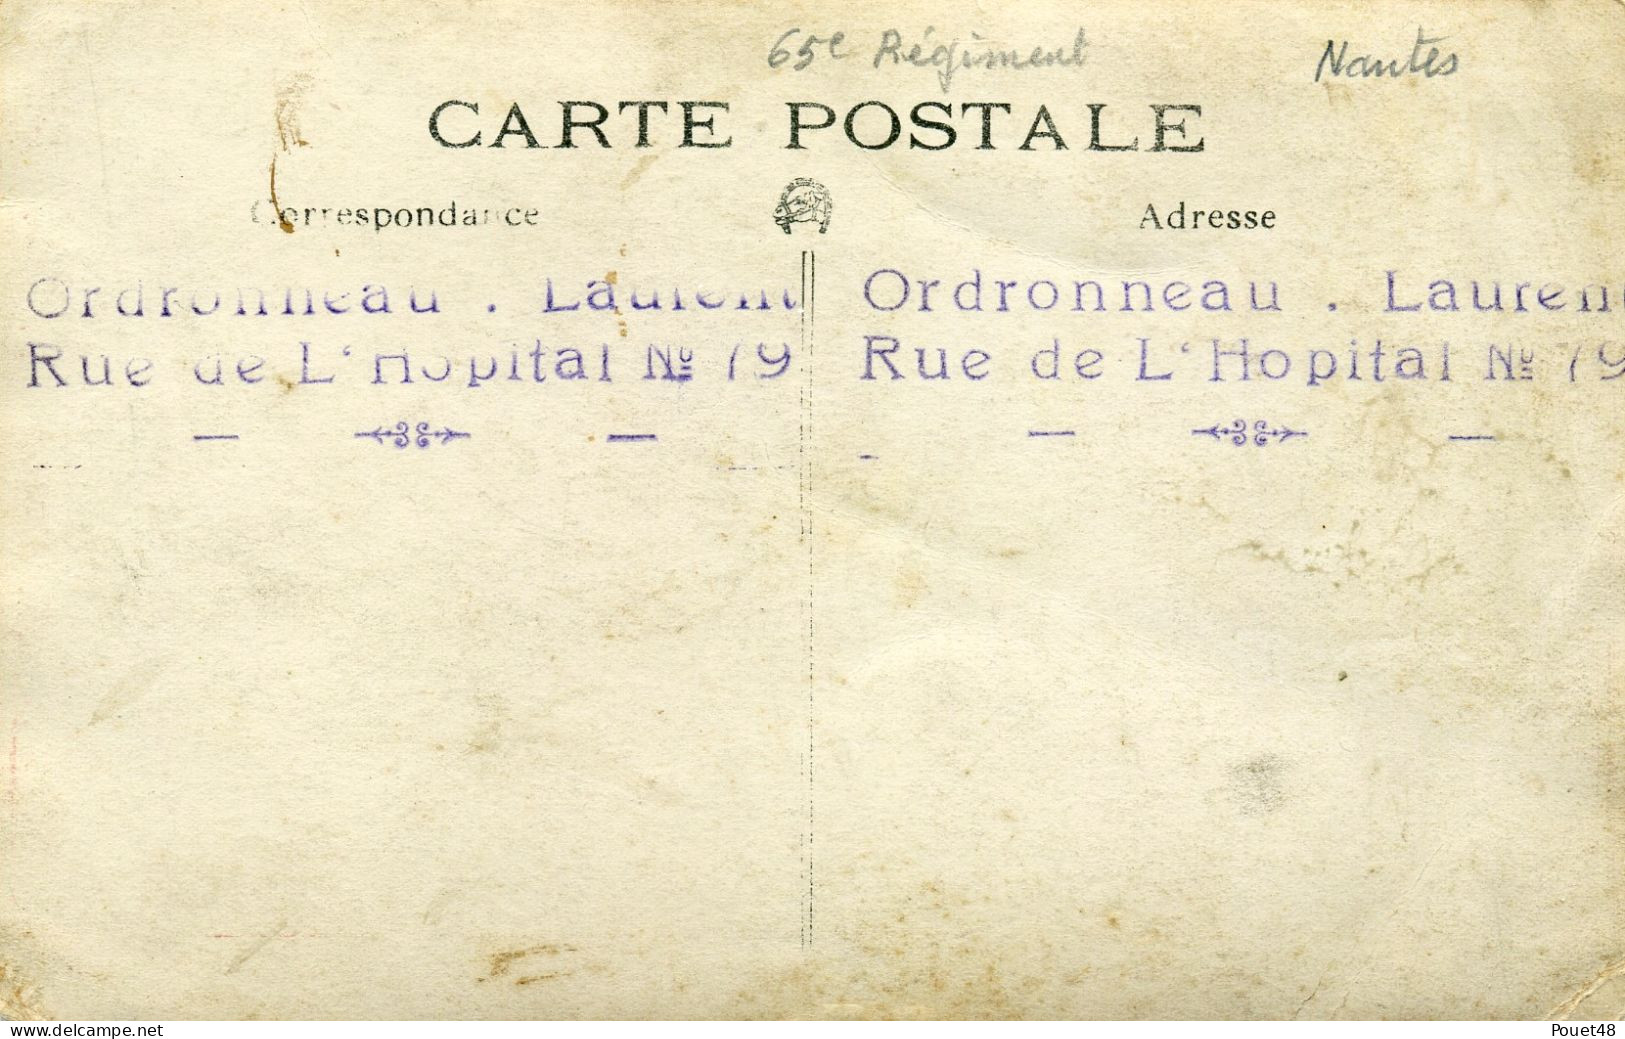 65e Régiment Nantes
CARTE POSTALE
Correspondance Adresse
Ordronneau . Laurent
Rue de L'Hopital No 79
Ordronneau . Laurent
Rue de L'Hopital No 79
www.delcampe.net
Pouet48